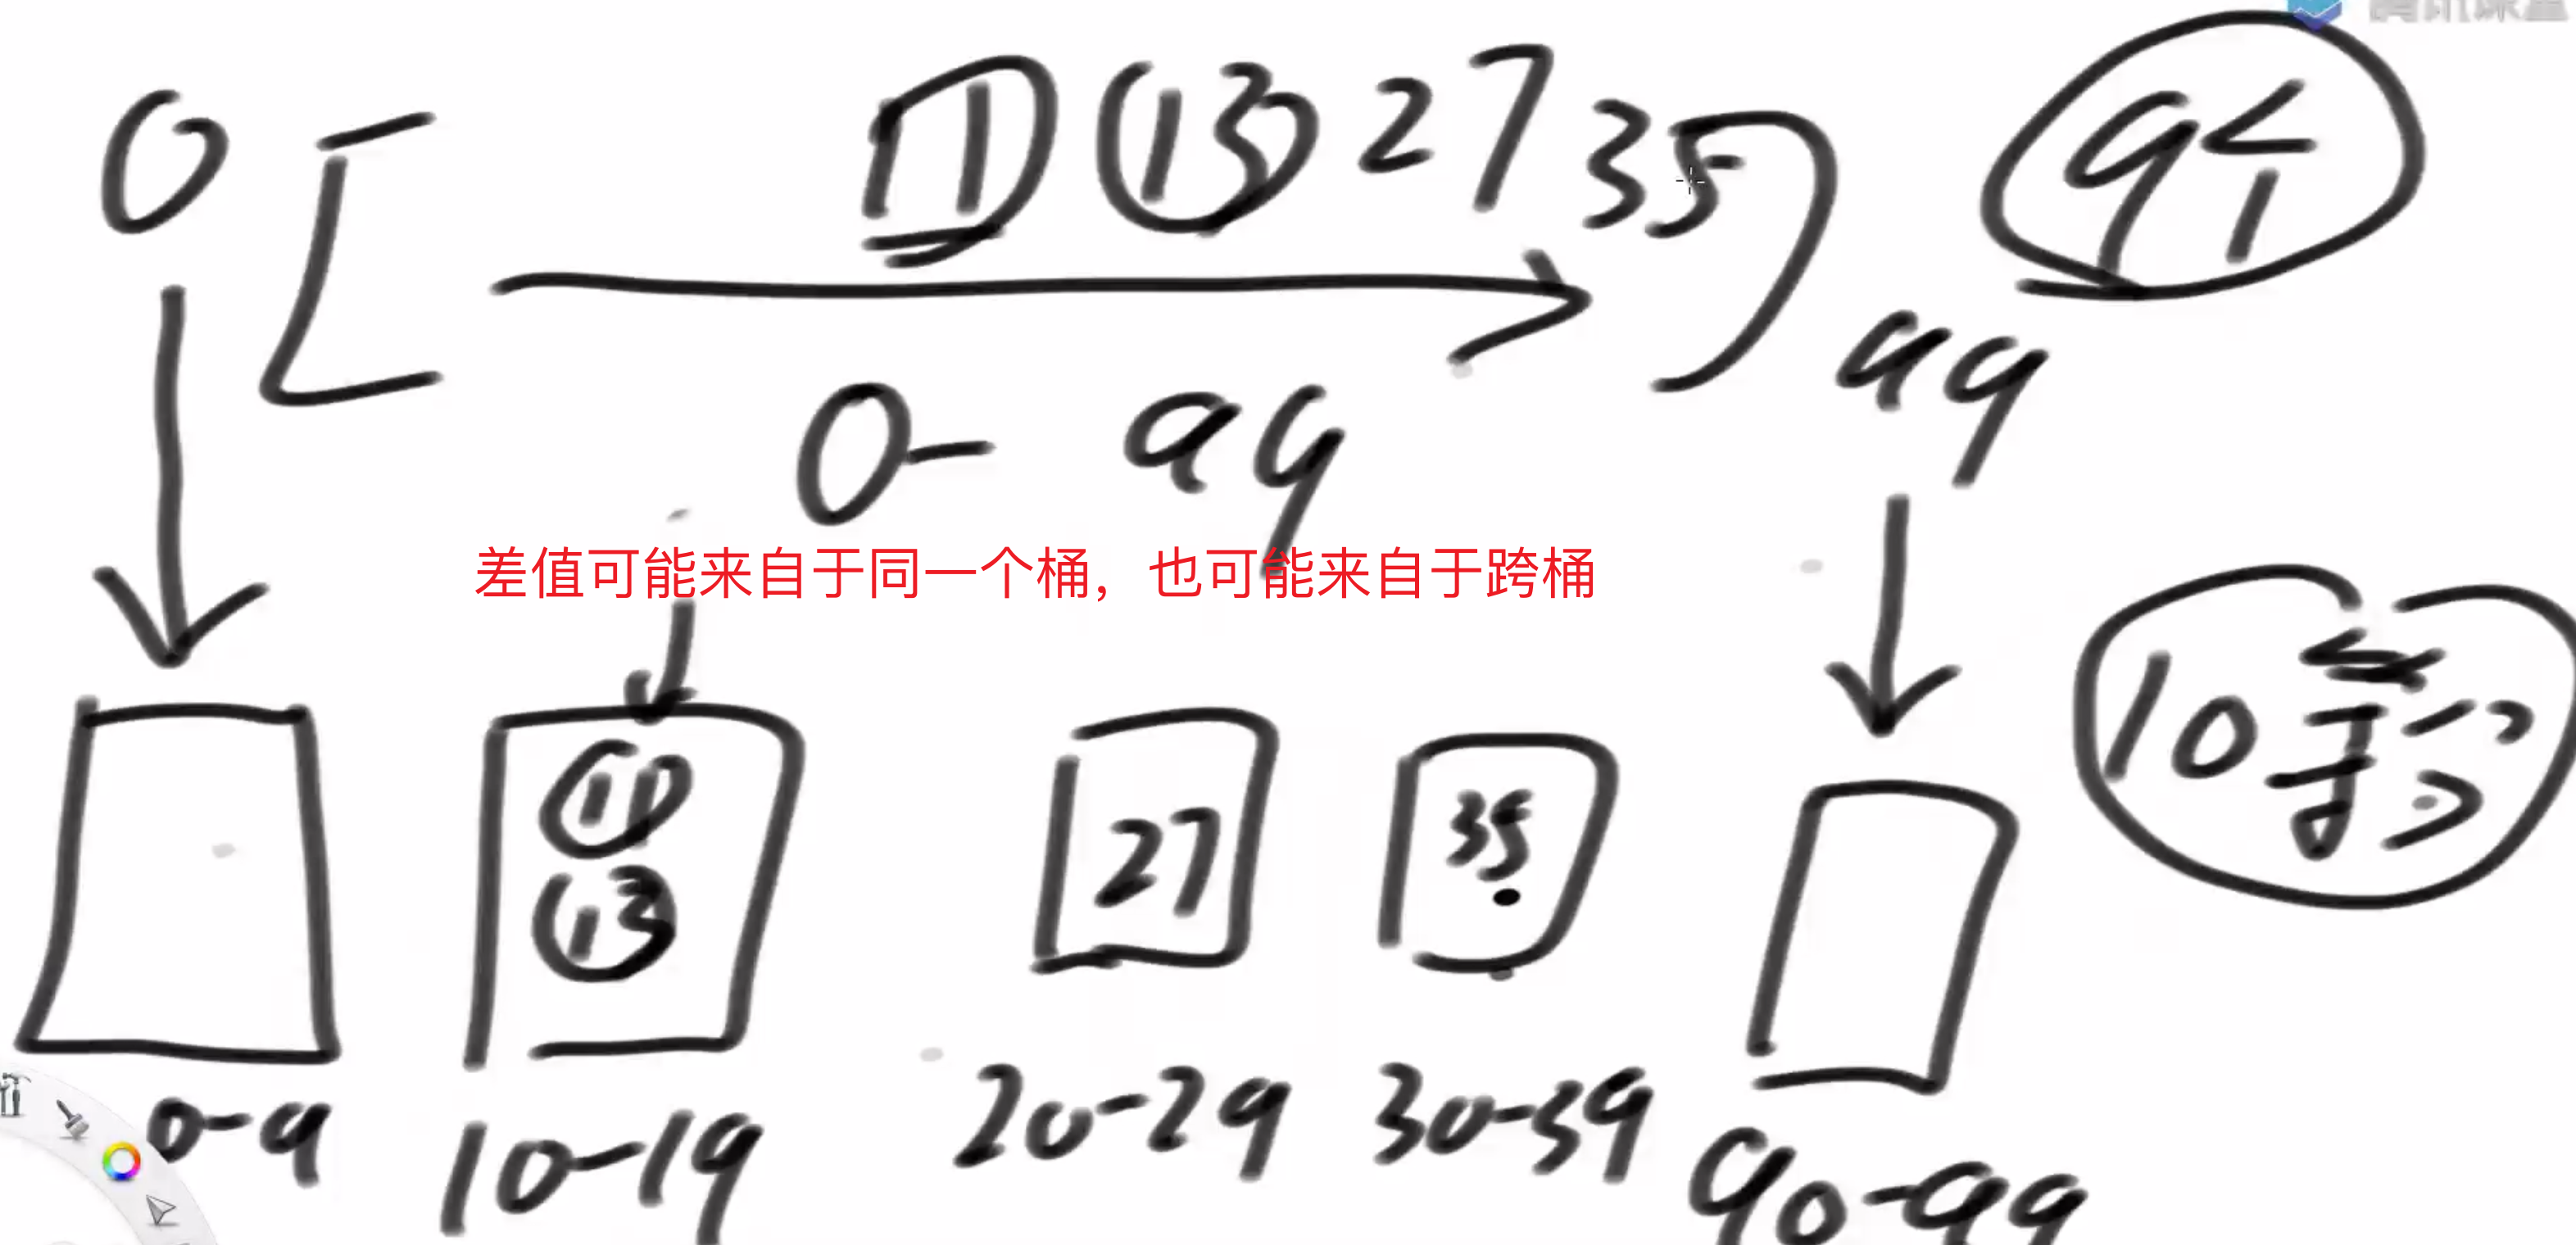 0 [ 11 13 27 35 ] 9个
99
0- 99
差值可能来自于同一个桶，也可能来自于跨桶
10等分
11
13
27
35
0-9 10-19 20-29 30-39 90-99